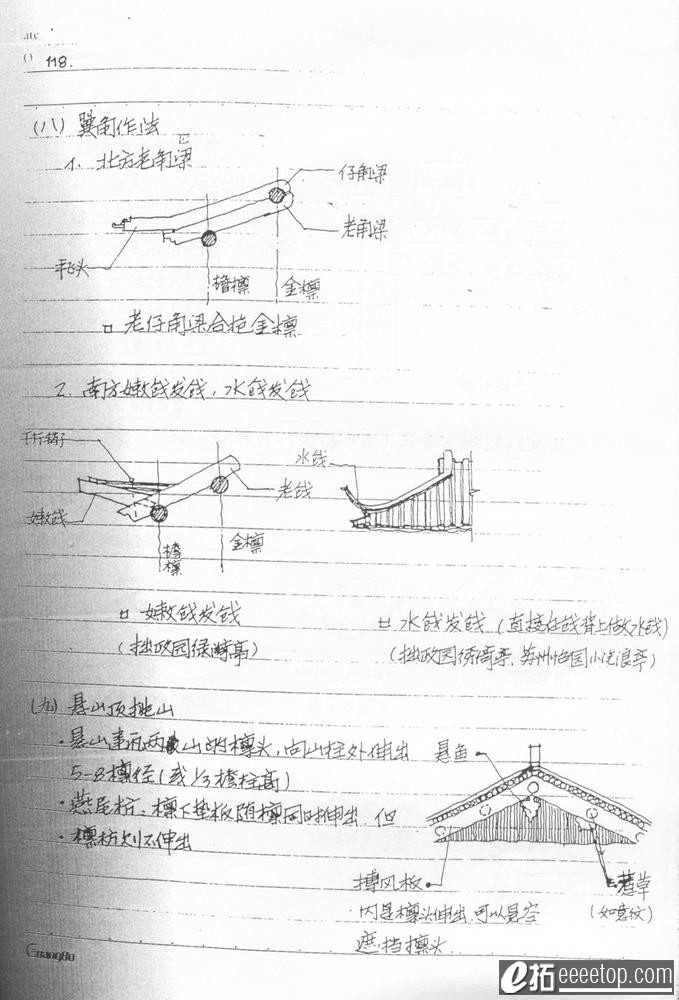 118.
(八) 翼角作法
1. 北方老角梁
仔角梁
老角梁
平飞头
檐檩
金檩
□ 老仔角梁合抱金檩
2. 南方嫩戗发戗，水戗发戗
千斤销子
水戗
老戗
嫩戗
檐檩
金檩
□ 嫩戗发戗
(拙政园绿漪亭)
□ 水戗发戗 (直接在戗背上做水戗)
(拙政园绣绮亭、苏州怡园小沧浪亭)
(九) 悬山顶挑山
·悬山事示两山的檩头，向山柱外伸出
悬鱼
5-8檩径(或1/3檐柱高)
·燕尾枋、檩下垫板随檩同时伸出，但
·檩枋则不伸出
搏风板
惹草
内是檩头伸出，可以悬空
(如意纹)
遮挡檩头.
GuangBo
e拓 eeeetop.com